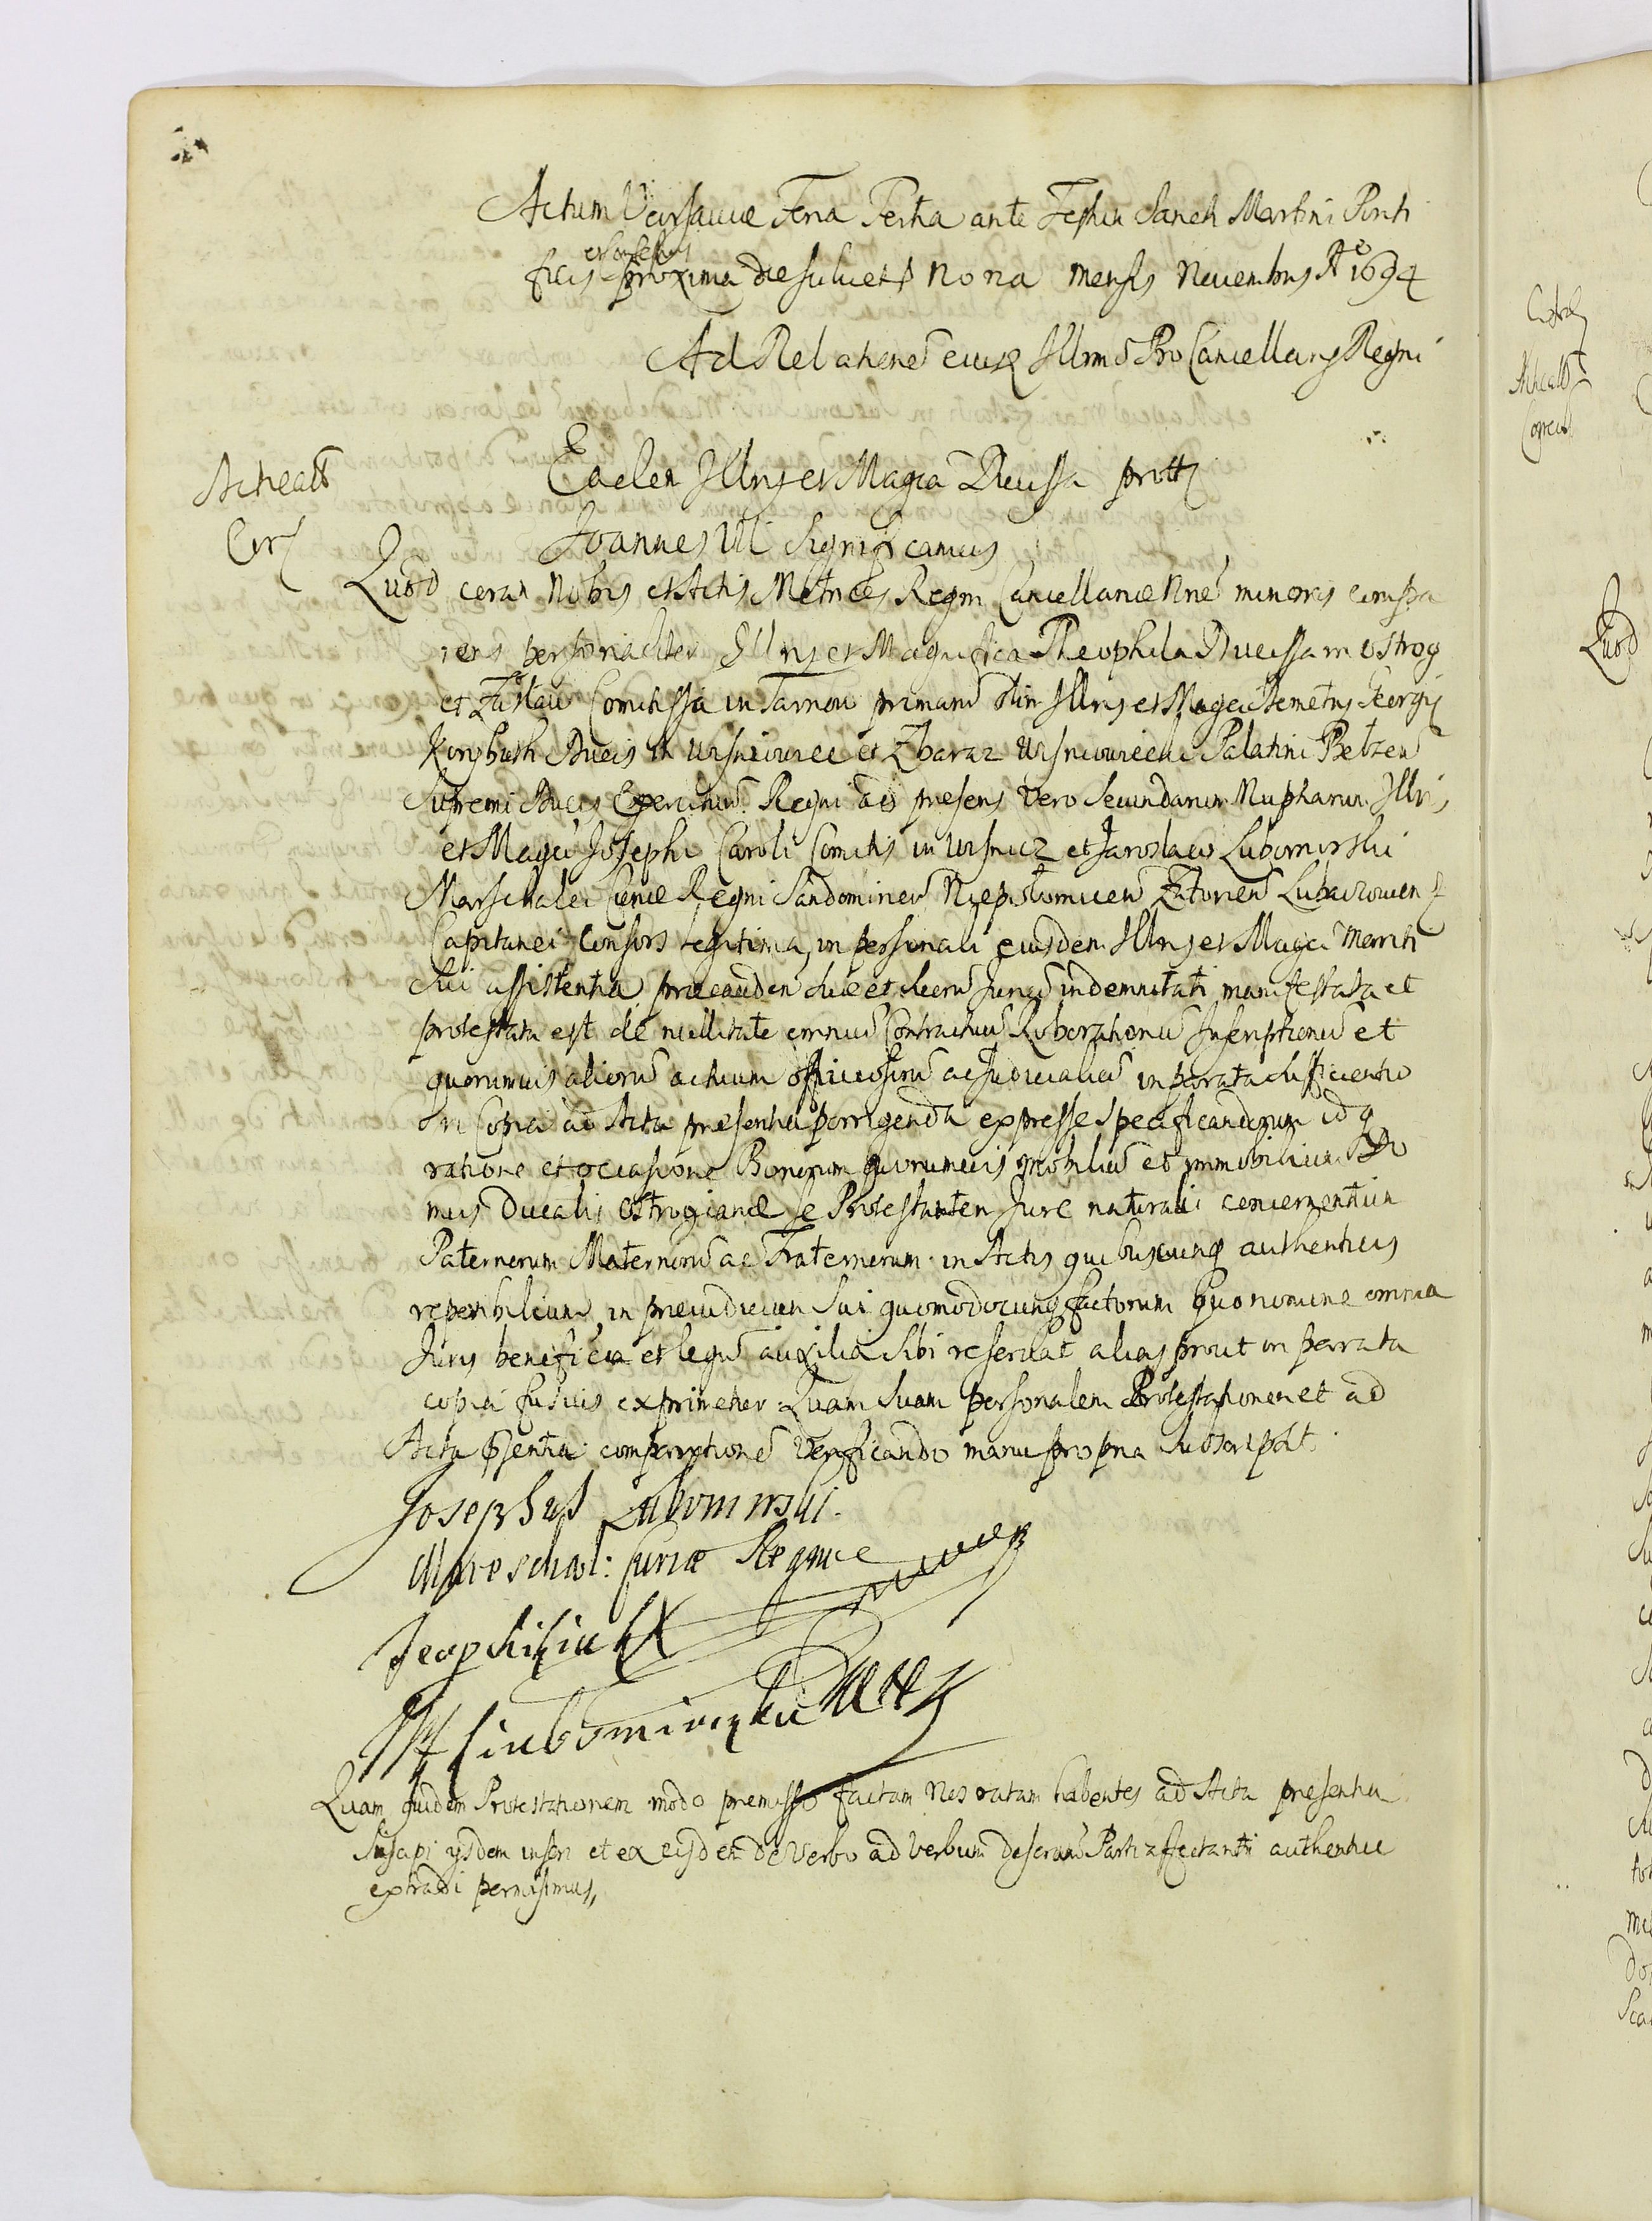 Actum Varsaviæ Feria Tertia ante Festum Sancti Martini Ponti
et Confessoris
ficis proxima die scilicet nona mensis Novembris Ao 1694
Ad Relationē eiusdē Illmi ProCancellarij Regni
Acticatt
Corr
Eadem Illris et Magca Ducissa prottr
Joannes III Significamus
Quod coram Nobis et Actis Metrices Regni Cancellariæ Nrae minoris compa
rens personaliter Illris et Magnifica Theophila Ducissa in Ostrog
et Zaslaw Comitissa in Tarnow primarū olim Illris et Magci Demetrij Georgij
Korybuth Ducis in Wisniowiec et Zbaraz Wisniowiecki Palatini Belzen
Supremi Ducis Exercituū Regni ad præsens vero secundarum Nuptiarum Illris
et Magci Josephi Caroli Comitis in Wisnicz et Jaroslaw Lubomirski
Marschalci Curiæ Regni Sandomirien Niepolomicen Zatorien Lubaczovien
Capitanei Consors legitima, in personali eiusdem Illris et Magci Mariti
sui assistentia præcauden suæ et suorū Juriū indemnitati manifestata et
protestata est de nullitate omniū Contractuū Roborationū Inscriptionū et
quorumvis aliorū actuum officiosorū ac judicialiū in parata sufficientio
ri Copia ad Acta præsentia porrigenda expresse specificandorum idq
ratione et occasione Bonorum quorumvis mobiliū et immobilium Do
mus Ducalis Ostrogianæ se Protestantem Jure naturali concernentium
Paternorum Maternorū ac Fraternorum in Actis quibuscunq authenticis
reperibilium, in præiudicium sui quomodocunq factorum Quo nomine omnia
Juris beneficia et legū auxilia sibi reservat alias prout in parata
copia fusius exprimetur Quam suam personalem Protestationem et ad
Acta præsentia comparitionē verificando manu propria subscripsit.
Josephus Lubomirski.
Mareschal: Curiæ Regni
Teophilia LX
Lubomirska MNK
Quam quidem Protestationem modo premisso factam Nos ratam habentes ad Acta presentia
suscipi ijsdem inseri et ex eisdem de verbo ad verbum descriptā Parti affectanti authentice
extradi permisimus,